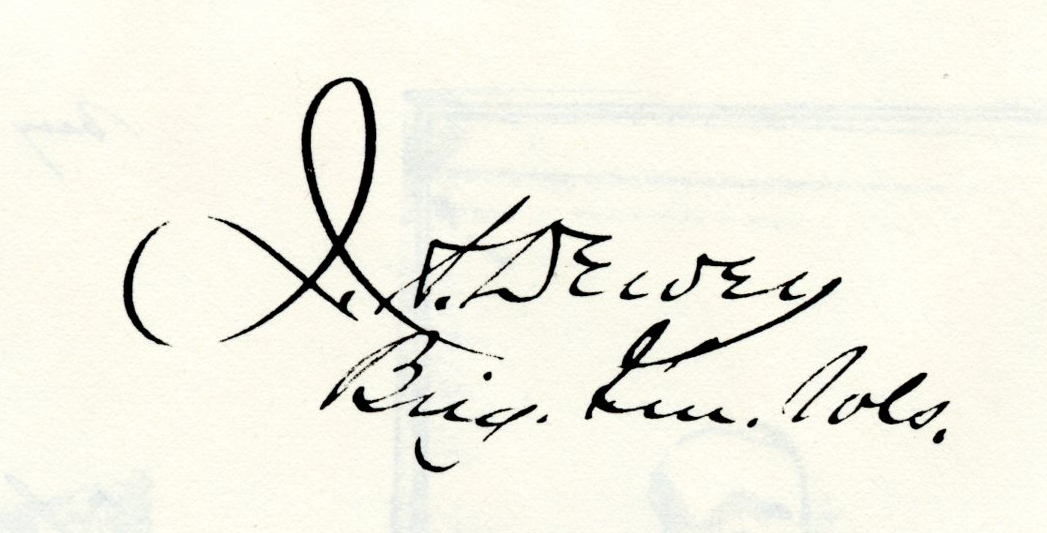 J. A. Dewey
Brig. Gen. Vols.